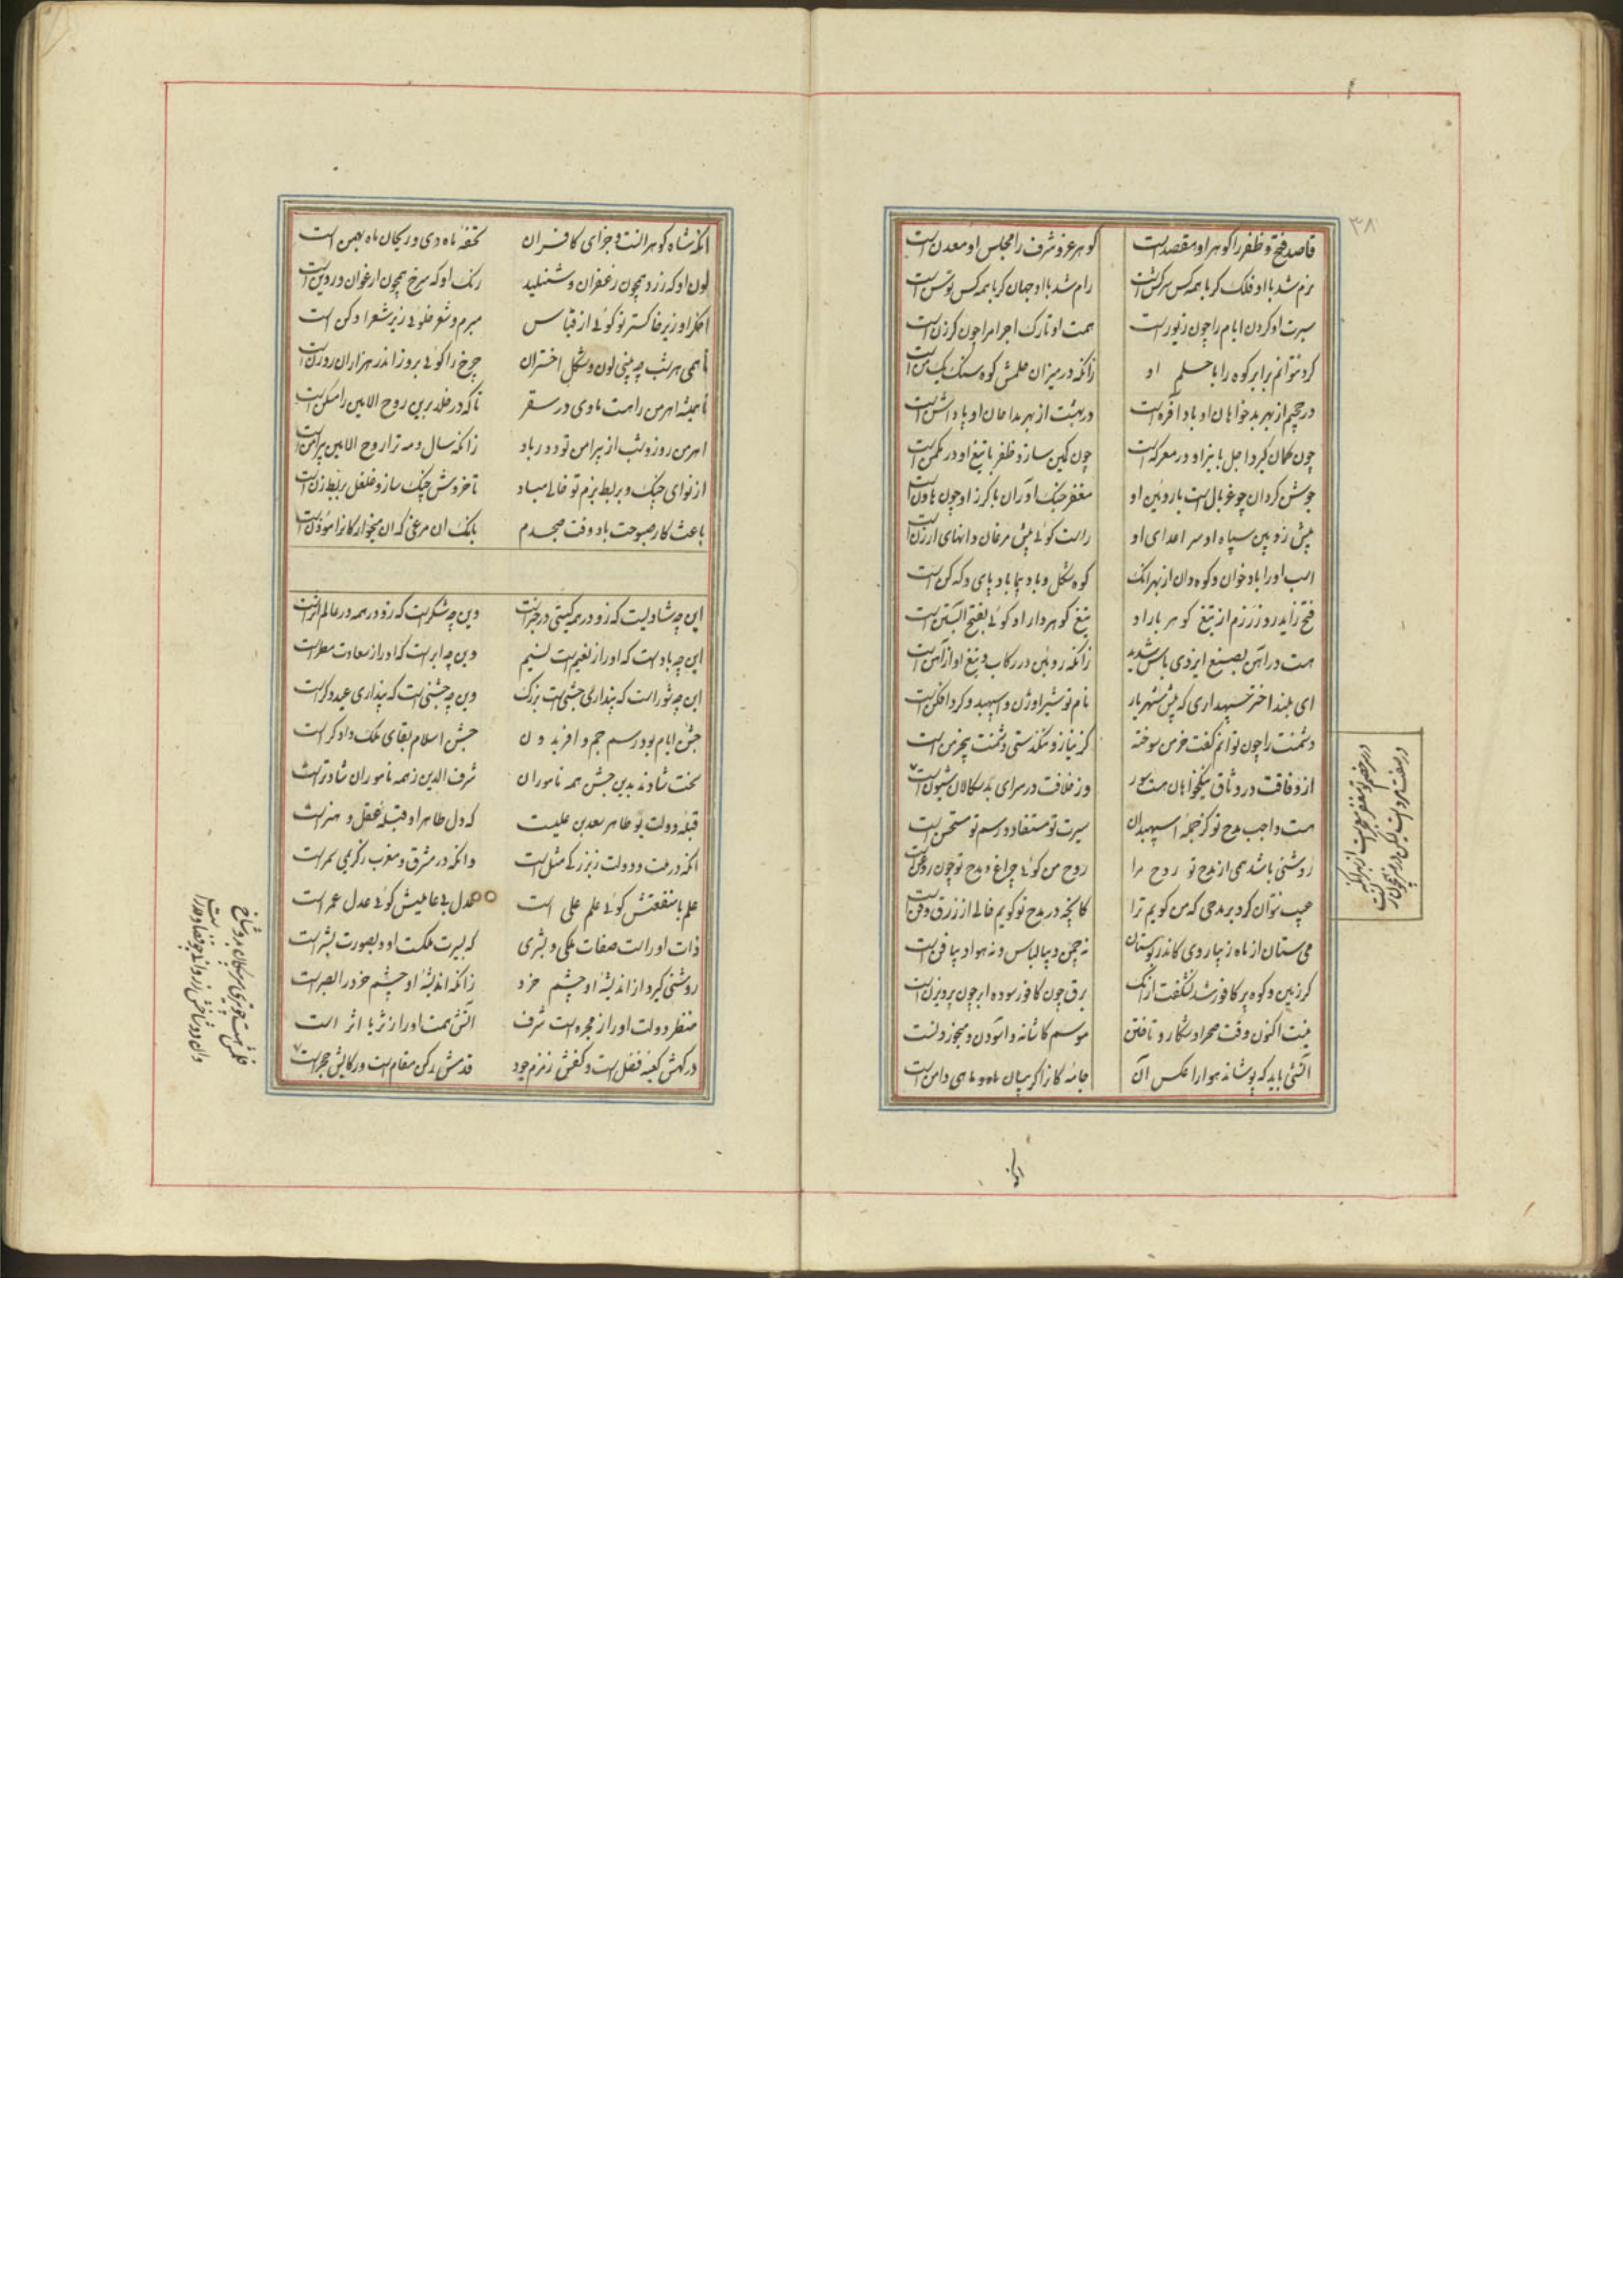 ۳۸
قاصد فتح و ظفر را گوهر او مقصد است گوهر عز و شرف را مجلس او معدن است
نرم شد با او فلک گر با همه کس سرکش است رام شد با او جهان گر با همه کس توسن است
سیرت او گردن ایام را چون زیور است همت او تارک اجرام را چون گرزن است
کرد نتوانم برابر کوه را با حلم او زانکه در میزان حلمش کوه سنگ یک من است
در جحیم از بهر بدخواهان او باد افره است در بهشت از بهر مداحان او پاداشن است
چون کمان گیرد اجل با تیر او در معرکه است چون کمین سازد ظفر با تیغ او در مکمن است
جوشن گردان چو غربال است با زوبین او مغفر جنگ آوران با گرز او چون هاون است
پیش زوبین سپاه او سر اعدای او راست گوئی پیش مرغان دانهای ارزن است
اسب او را باد خوان و کوه دان از بهر انک کوه شکل و باد پیما باد پای و که کن است
فتح زاید روز رزم از تیغ گوهر بار او تیغ گوهردار او گوئی بفتح آبستن است
هست در آهن بصنع ایزدی باس شدید زانکه روئین در رکاب و تیغ او از آهن است
ای بلند اختر سپهداری که پیش شهریار نام تو شیر اوژن و اسپهبد و گرد افکن است
دشمنت را چون توانم گفت خرمن سوخته کز نیاز و تنگدستی دشمنت بی خرمن است
از وفاقت در وثاق نیکخواهان هست سور وز خلافت در سرای بدسگالان شیون است
هست واجب مدح تو کز جمله اسپهبدان سیرت تو مستفاد و رسم تو مستحسن است
روشنی باشد همی از مدح تو روح مرا روح من گوئی چراغ و مدح تو چون روغن است
عیب نتوان کرد بر مدحی که من گویم ترا کانچه در مدح تو گویم خالی از زرق و فن است
می ستان از ماه زیبا روی کاندر بوستان نه چمن دیبا لباس و نه هوا دیبا فن است
گر زمین و کوه پر کافور شد نشگفت از انک برق چون کافور سوده ابر چون پرویزن است
نیست اکنون وقت صحرا و شکار و تافتن موسم کاشانه و آسودن و می خوردنست
آتشی باید که پوشاند هوا را عکس آن جامه کانرا گریبان ماه و ماهی دامن است
انکه شاه گوهرانست و جزای کافران تحفه ماه دی و ریحان ماه بهمن است
لون او که زرد همچون زعفران و شنبلید رنگ او که سرخ همچون ارغوان و روین است
اخگر او زیر خاکستر تو گوئی از قیاس مبرم و شعر
تا همی هر شب چه بینی لون و شکل اختران چرخ را گوئی بروز اندر هزاران روزن است
تا همیشه اهرمن را هست ماوی در سقر تا که در خلد برین روح الامین را مسکن است
اهرمن روز و شب از پیرامن تو دور باد زانکه سال و مه ترا روح الامین پیرامن است
از نوای چنگ و بربط بزم تو خالی مباد تا خروش چنگ ساز و غلغل بربط زن است
باعث کار صبوحت باد وقت صبحدم بانگ ان مرغی که ان میخوارگانرا مؤذن است
این چه شادیست که زو در همه گیتی خبرست وین چه شکرست که زو در همه عالم اثرست
این چه باد است که او را ز نعیم است نسیم وین چه ابر است که او را ز سعادت مطر است
این چه شور است که پنداری جشنی است بزرگ وین چه جشنی است که پنداری عید دگر است
جشن ایام بود رسم جم و افریدون جشن اسلام بقای ملک دادگر است
سخت شادند بدین جشن همه ناموران شرف الدین ز همه ناموران شادتر است
قبله دولت بو طاهر سعد بن علیست که دل طاهر او قبله عقل و هنر است
انکه در ملت و دولت ز بزرگی مثل است وانکه در مشرق و مغرب ز کریمی سمر است
علم با منفعتش گوئی علم علی است عدل بی عایلیش گوئی عدل عمر است
ذات او راست صفات ملکی و بشری که بسیرت ملکست او و بصورت بشر است
روشنی گیرد از اندیشه او چشم خرد زانکه اندیشه او چشم خرد را بصر است
منظر دولت او را ز مجره است شرف آتش همت او را ز ثریا اثر است
درگهش کعبه فضل است و کفش زمزم جود قدمش رکن مقام است و رکابش حجر است